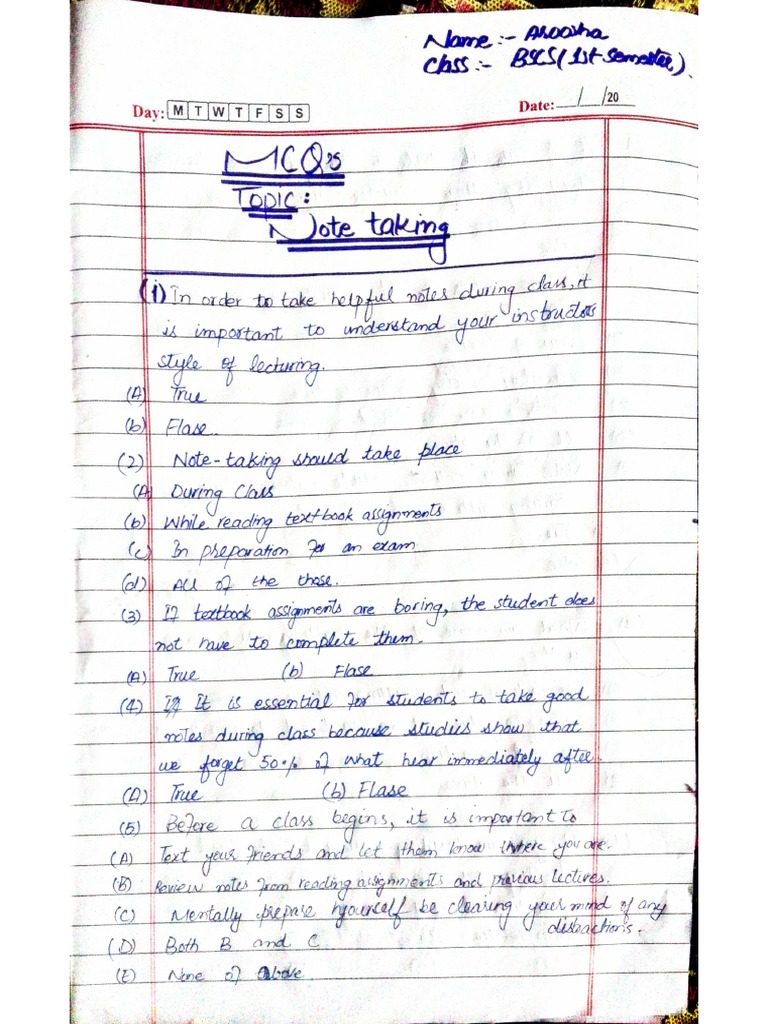 Name:- Aroosha
Class:- BSCS (1st semester).
Day: M T W T F S S
Date: __/__/20__
MCQ's
TOPIC:
Note taking
(1) In order to take helpful notes during class, it
is important to understand your instructors
style of lecturing.
(A) True
(b) Flase.
(2) Note-taking should take place
(A) During Class
(b) While reading textbook assignments
(c) In preparation for an exam
(d) All of the those.
(3) If textbook assignments are boring, the student does
not have to complete them.
(A) True (b) Flase
(4) It is essential for students to take good
notes during class because studies show that
we forget 50% of what hear immediately after.
(A) True (b) Flase
(5) Before a class begins, it is important to
(A) Text your friends and let them know where you are.
(B) Review notes from reading assignments and previous lectures.
(C) Mentally prepare yourself be clearing your mind of any
distractions.
(D) Both B and C
(E) None of above